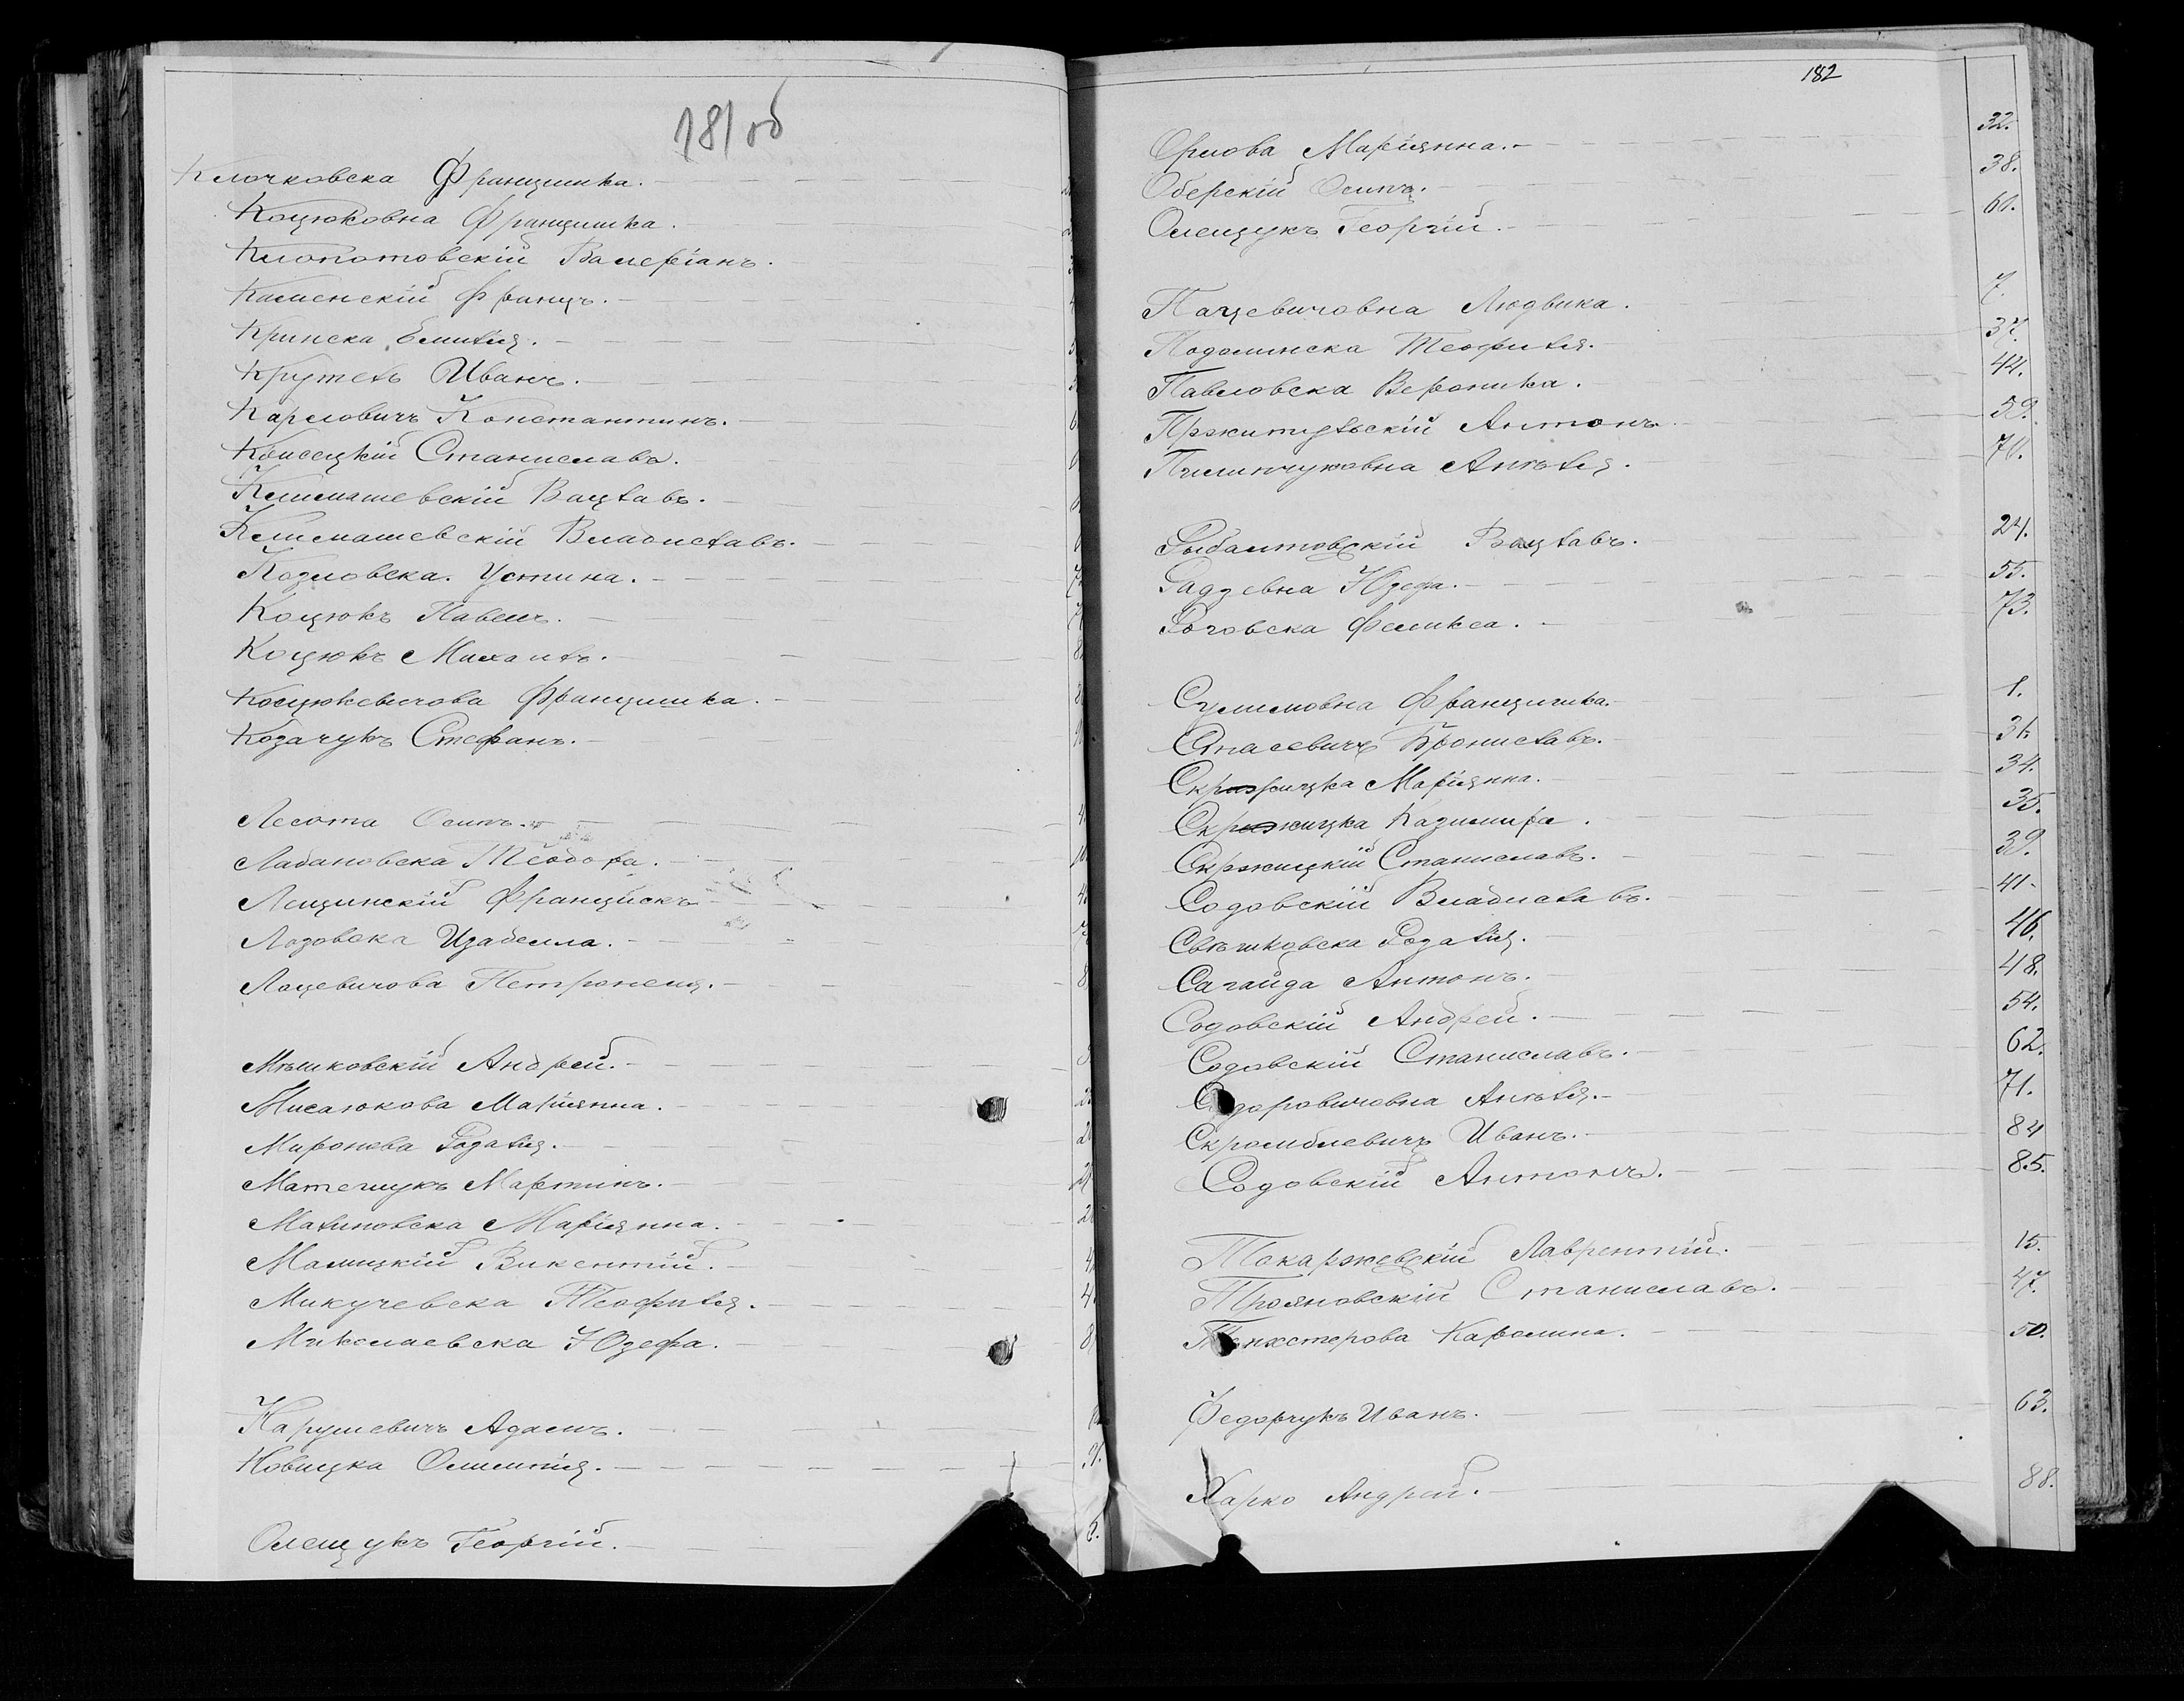 181 об
Клочковска Францишка.
Коцюковна Францишка.
Клопотовскій Валеріанъ.
Каменскій Францъ.
Кринска Емилія.
Крутель Иванъ.
Карловичъ Константинъ.
Станиславъ.
Климашевскій Вацлавъ.
Климашевскій Владиславъ.
Козловска Устина.
Коцюкъ Павелъ.
Коцюкъ Михаилъ.
Францишка.
Козачукъ Стефанъ.
Лесота Осипъ.
Лабановска Теодора.
Лещинскій Францискъ
Лозовска Изабелла.
Лоцевичова Петронеля.
Мѣшковскій Андрей.
Мисаюкова Маріянна.
Миронова Розалія.
Матейукъ Мартинъ.
Малиновска Маріянна.
Малицкій Викентій.
Микучевска Теофиля.
Миколаевска Юзефа.
Нарушевичъ Адамъ.
Новицка Олимпія.
Олещукъ Георгій. 6.
182
Орлова Маріянна. 32.
Оберскій Осипъ. 38.
Олещукъ Георгій. 61.
Пацевичовна Людвика. 7.
Подолинска Теофиля. 37.
Павловска Вероника. 44.
Антонъ 59.
Пилипчуковна Анѣля. 70.
Рыбалтовскій Вацлавъ. 24.
Радзевна Юзефа. 55.
Роговска Феликса. 73.
Сулимовна Францишка. 1.
Стасевичъ Брониславъ. 31.
Маріянна. 34.
Казимира. 35.
Скржицкій Станиславъ. 39.
Содовскій Владиславъ. 41.
Свѣшковска Розалія. 46.
Сагайда Антонъ. 48.
Содовскій Андрей. 54.
Содовскій Станиславъ. 62.
Сидоровичовна Анѣля. 71.
Скромблевичъ Иванъ. 84
Содовскій Антонъ. 85.
Токаржевскій Лаврентій. 15.
Трояновскій Станиславъ. 47.
Каролина. 50.
Федорчукъ Иванъ. 63.
Харко Андрей. 88.